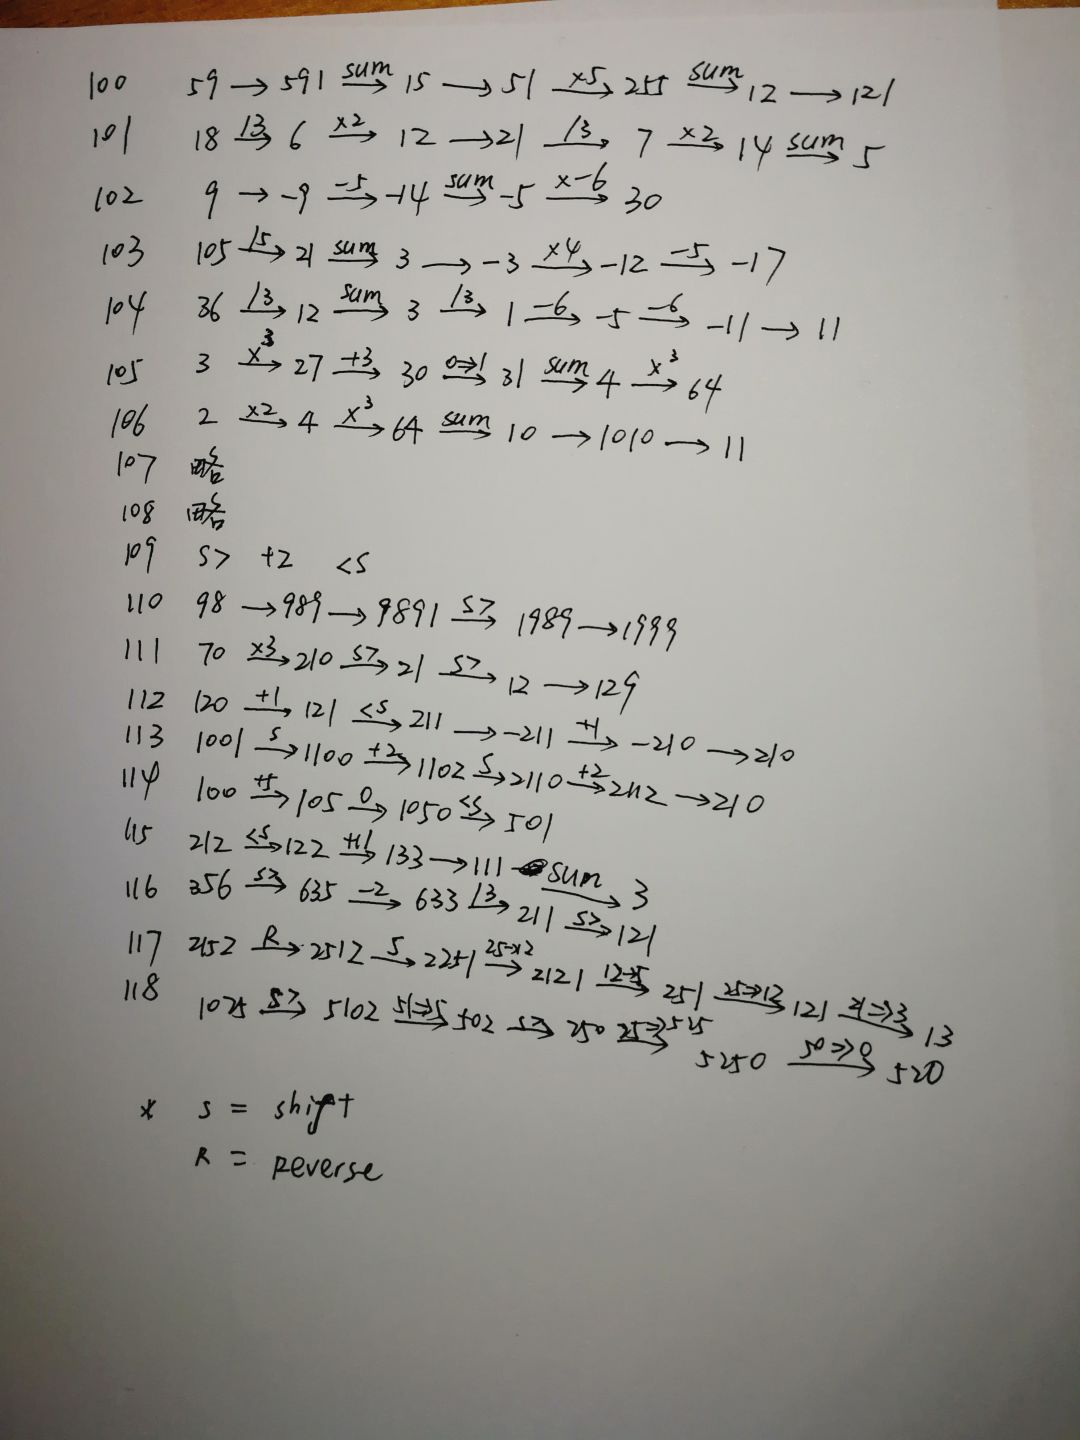 100 59 → 591 sum→ 15 → 51 x5→ 255 sum→ 12 → 121
101 18 /3→ 6 x2→ 12 → 21 /3→ 7 x2→ 14 sum→ 5
102 9 → -9 -5→ -14 sum→ -5 x-6→ 30
103 105 /5→ 21 sum→ 3 → -3 x4→ -12 -5→ -17
104 36 /3→ 12 sum→ 3 /3→ 1 -6→ -5 -6→ -11 → 11
105 3 x³→ 27 +3→ 30 0⇒1→ 31 sum→ 4 x³→ 64
106 2 x2→ 4 x³→ 64 sum→ 10 → 1010 → 11
107 略
108 略
109 S> +2 <S
110 98 → 989 → 9891 S>→ 1989 → 1999
111 70 x3→ 210 S>→ 21 S>→ 12 → 129
112 120 +1→ 121 <S→ 211 → -211 +1→ -210 → 210
113 1001 S→ 1100 +2→ 1102 S→ 2110 +2→ 2112 → 210
114 100 +5→ 105 0→ 1050 <S→ 501
115 212 <S→ 122 +11→ 133 → 111 sum→ 3
116 356 S>→ 635 -2→ 633 /3→ 211 S>→ 121
117 2152 R→ 2512 S→ 2251 25⇒12→ 2121 12⇒5→ 251 25⇒12→ 121 21⇒3→ 13
118 1025 S>→ 5102 51⇒5→ 502 S>→ 250 25⇒525→ 5250 50⇒0→ 520
* S = shift
R = Reverse